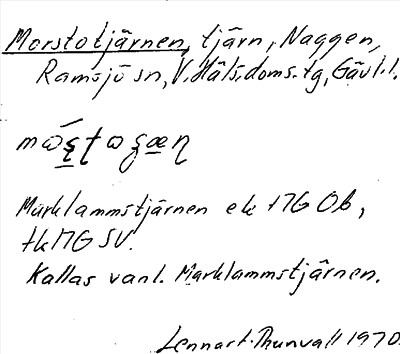 Morstotjärnen, tjärn, Naggen,
Ramsjö sn, V. Häls. doms. tg, Gävl. l.
Marklammstjärnen ek 17G Ob,
tk 17G SV.
Kallas vanl. Marklammstjärnen.
Lennart Thunvall 1970